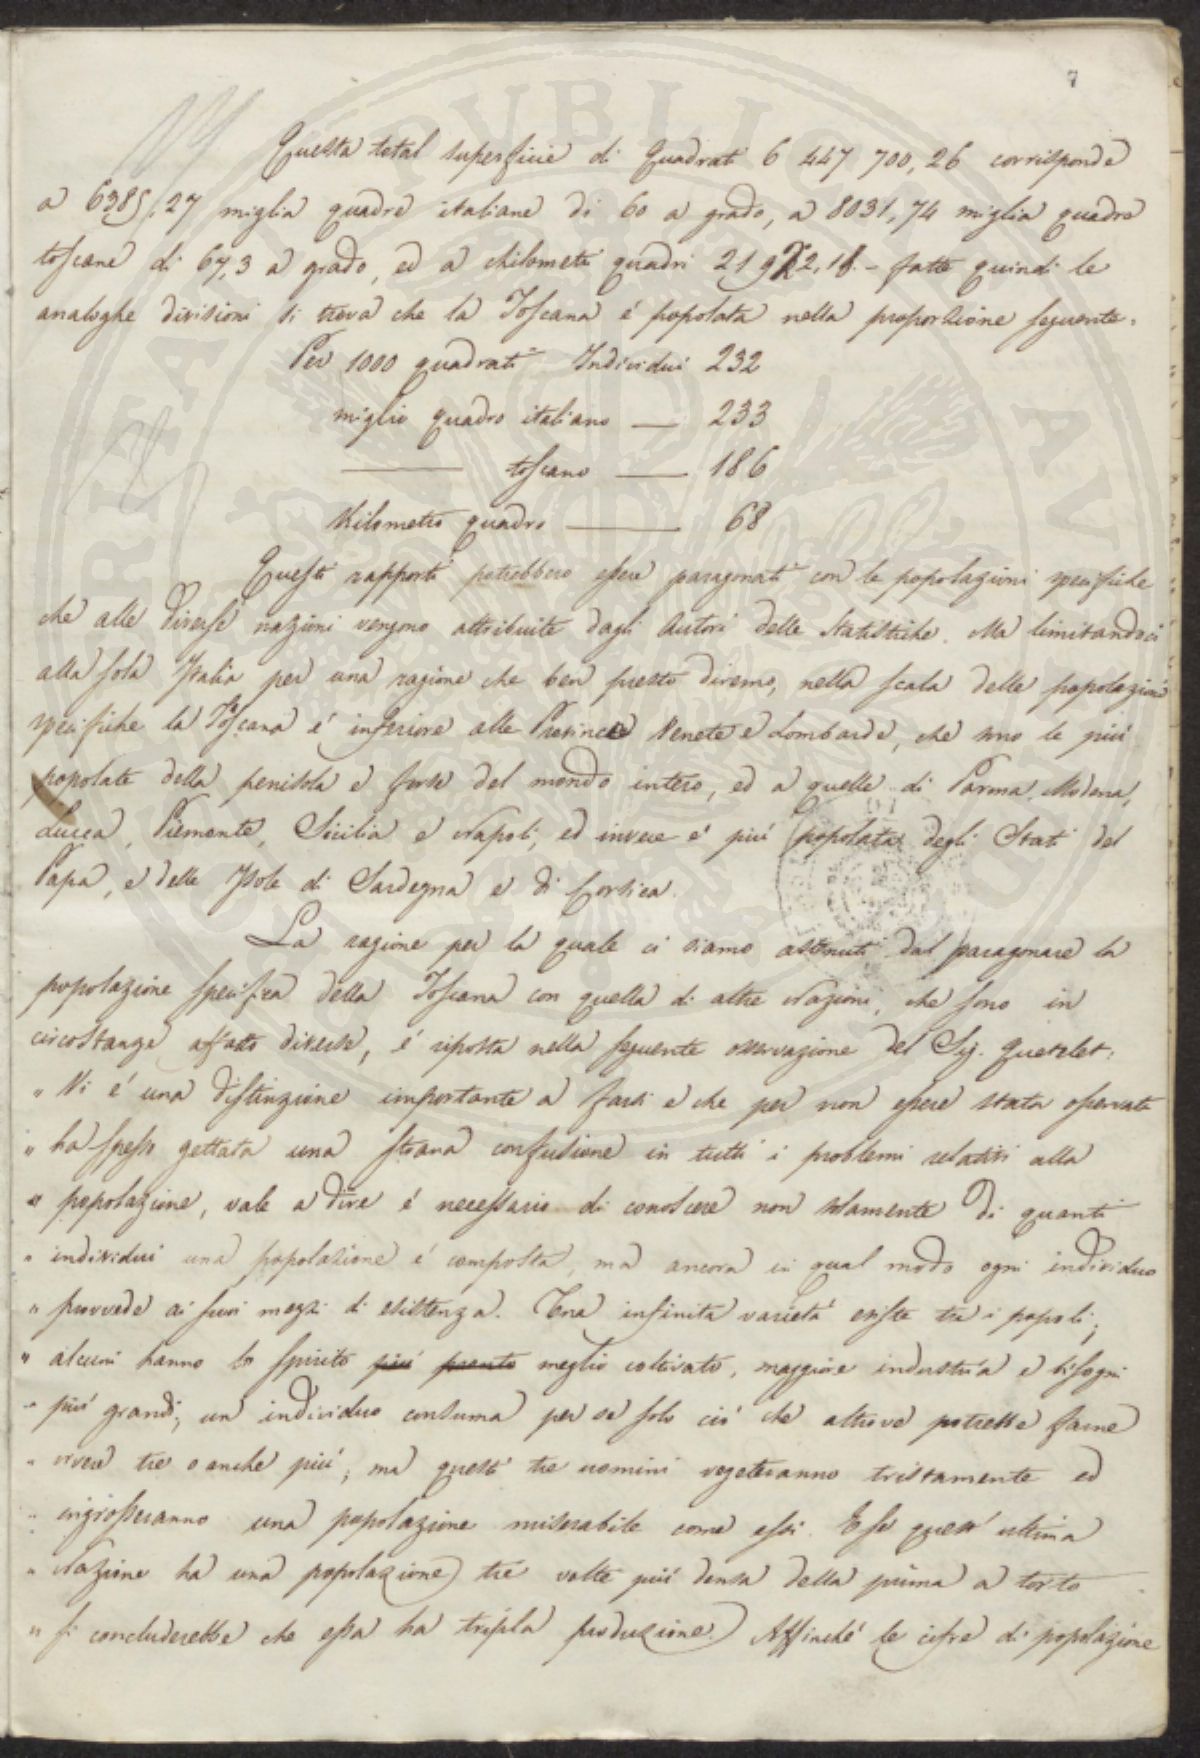 7
Questa total superficie di Quadrati 6 447 700, 26 corrisponde
a 6385,27 miglia quadre italiane di 60 a grado, a 8031,74 miglia quadre
toscane di 67,3 a grado, ed a chilometri quadri - fatte quindi le
analoghe divisioni si trova che la Toscana é popolata nella proporzione seguente.
Per 1000 quadrati Individui 232
miglio quadro italiano — 233
— toscano — 186
Kilometro quadro — 68
Questi rapporti potrebbero essere paragonati con le popolazioni specifiche
che alle diverse nazioni vengono attribuite dagli Autori delle Statistiche. Ma limitandoci
alla sola Italia per una ragione che ben presto diremo, nella scala delle popolazioni
specifiche la Toscana é inferiore alle Provincie Venete e Lombarde, che sono le piú
popolate della penisola e forse del mondo intero, ed a quelle di Parma, Modena,
Lucca, Piemonte, Sicilia e Napoli, ed invece é piú popolata degli Stati del
Papa, e delle Isole di Sardegna e di Corsica.
La ragione per la quale ci siamo astenuti dal paragonare la
popolazione specifica della Toscana con quella di altre Nazioni, che sono in
circostanze affatto diverse, é riposta nella seguente osservazione del Sig. Quetelet:
" Vi é una distinzione importante a farsi e che per non essere stata osservata
" ha spesso gettata una strana confusione in tutti i problemi relativi alla
" popolazione, vale a dire é necessario di conoscere non solamente di quanti
" individui una popolazione é composta, ma ancora in qual modo ogni individuo
" provvede ai suoi mezzi di esistenza. Una infinita varietá esiste tra i popoli;
" alcuni hanno lo spirito piú pronto meglio coltivato, maggiore industria e bisogni
" piú grandi; un individuo consuma per se solo ció che altrove potrebbe farne
" vivere tre o anche piú; ma questi tre uomini vegeteranno tristamente ed
" ingrosseranno una popolazione miserabile come essi. E se quest'ultima
" Nazione ha una popolazione tre volte piú densa della prima a torto
" si concluderebbe che essa ha tripla produzione. Affinché le cifre di popolazione